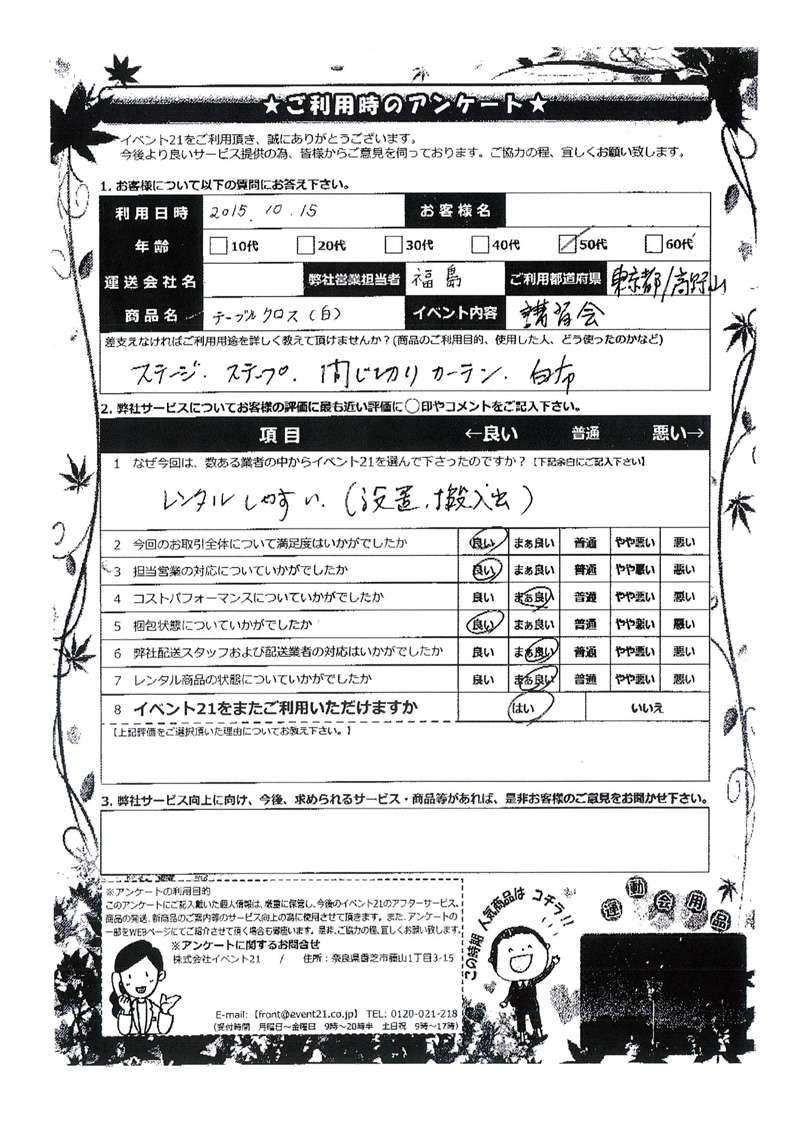 ★ご利用時のアンケート★
イベント21をご利用頂き、誠にありがとうございます。
今後より良いサービス提供の為、皆様からご意見を伺っております。ご協力の程、宜しくお願い致します。
1. お客様について以下の質問にお答え下さい。
利用日時 2015.10.15 お客様名
年齢 10代 20代 30代 40代 50代 60代
運送会社名 弊社営業担当者 福島 ご利用都道府県 東京都/高野山
商品名 テーブルクロス(白) イベント内容 講習会
差支えなければご利用用途を詳しく教えて頂けませんか?(商品のご利用目的、使用した人、どう使ったのかなど)
ステージ. ステップ. 間じ切りカーテン. 白布
2. 弊社サービスについてお客様の評価に最も近い評価に○印やコメントをご記入下さい。
項目 ←良い 普通 悪い→
1 なぜ今回は、数ある業者の中からイベント21を選んで下さったのですか?【下記余白にご記入下さい】
レンタルしやすい.(設置.搬入出)
2 今回のお取引全体について満足度はいかがでしたか 良い まぁ良い 普通 やや悪い 悪い
3 担当営業の対応についていかがでしたか 良い まぁ良い 普通 やや悪い 悪い
4 コストパフォーマンスについていかがでしたか 良い まぁ良い 普通 やや悪い 悪い
5 梱包状態についていかがでしたか 良い まぁ良い 普通 やや悪い 悪い
6 弊社配送スタッフおよび配送業者の対応はいかがでしたか 良い まぁ良い 普通 やや悪い 悪い
7 レンタル商品の状態についていかがでしたか 良い まぁ良い 普通 やや悪い 悪い
8 イベント21をまたご利用いただけますか はい いいえ
【上記評価をご選択頂いた理由についてお教え下さい。】
3. 弊社サービス向上に向け、今後、求められるサービス・商品等があれば、是非お客様のご意見をお聞かせ下さい。
※アンケートの利用目的
このアンケートにご記入戴いた個人情報は、厳重に保管し、今後のイベント21のアフターサービス、
商品の発送、新商品のご案内等のサービス向上の為に使用させて頂きます。また、アンケートの
一部をWEBページにてご紹介させて頂く場合も御座います。是非、ご協力の程、宜しくお願い致します。
※アンケートに関するお問合せ
株式会社イベント21 / 住所:奈良県香芝市藤山1丁目3-15
E-mail:【front@event21.co.jp】 TEL: 0120-021-218
(受付時間 月曜日~金曜日 9時~20時半 土日祝 9時~17時)
この時期 人気商品は コチラ!!
運動会用品